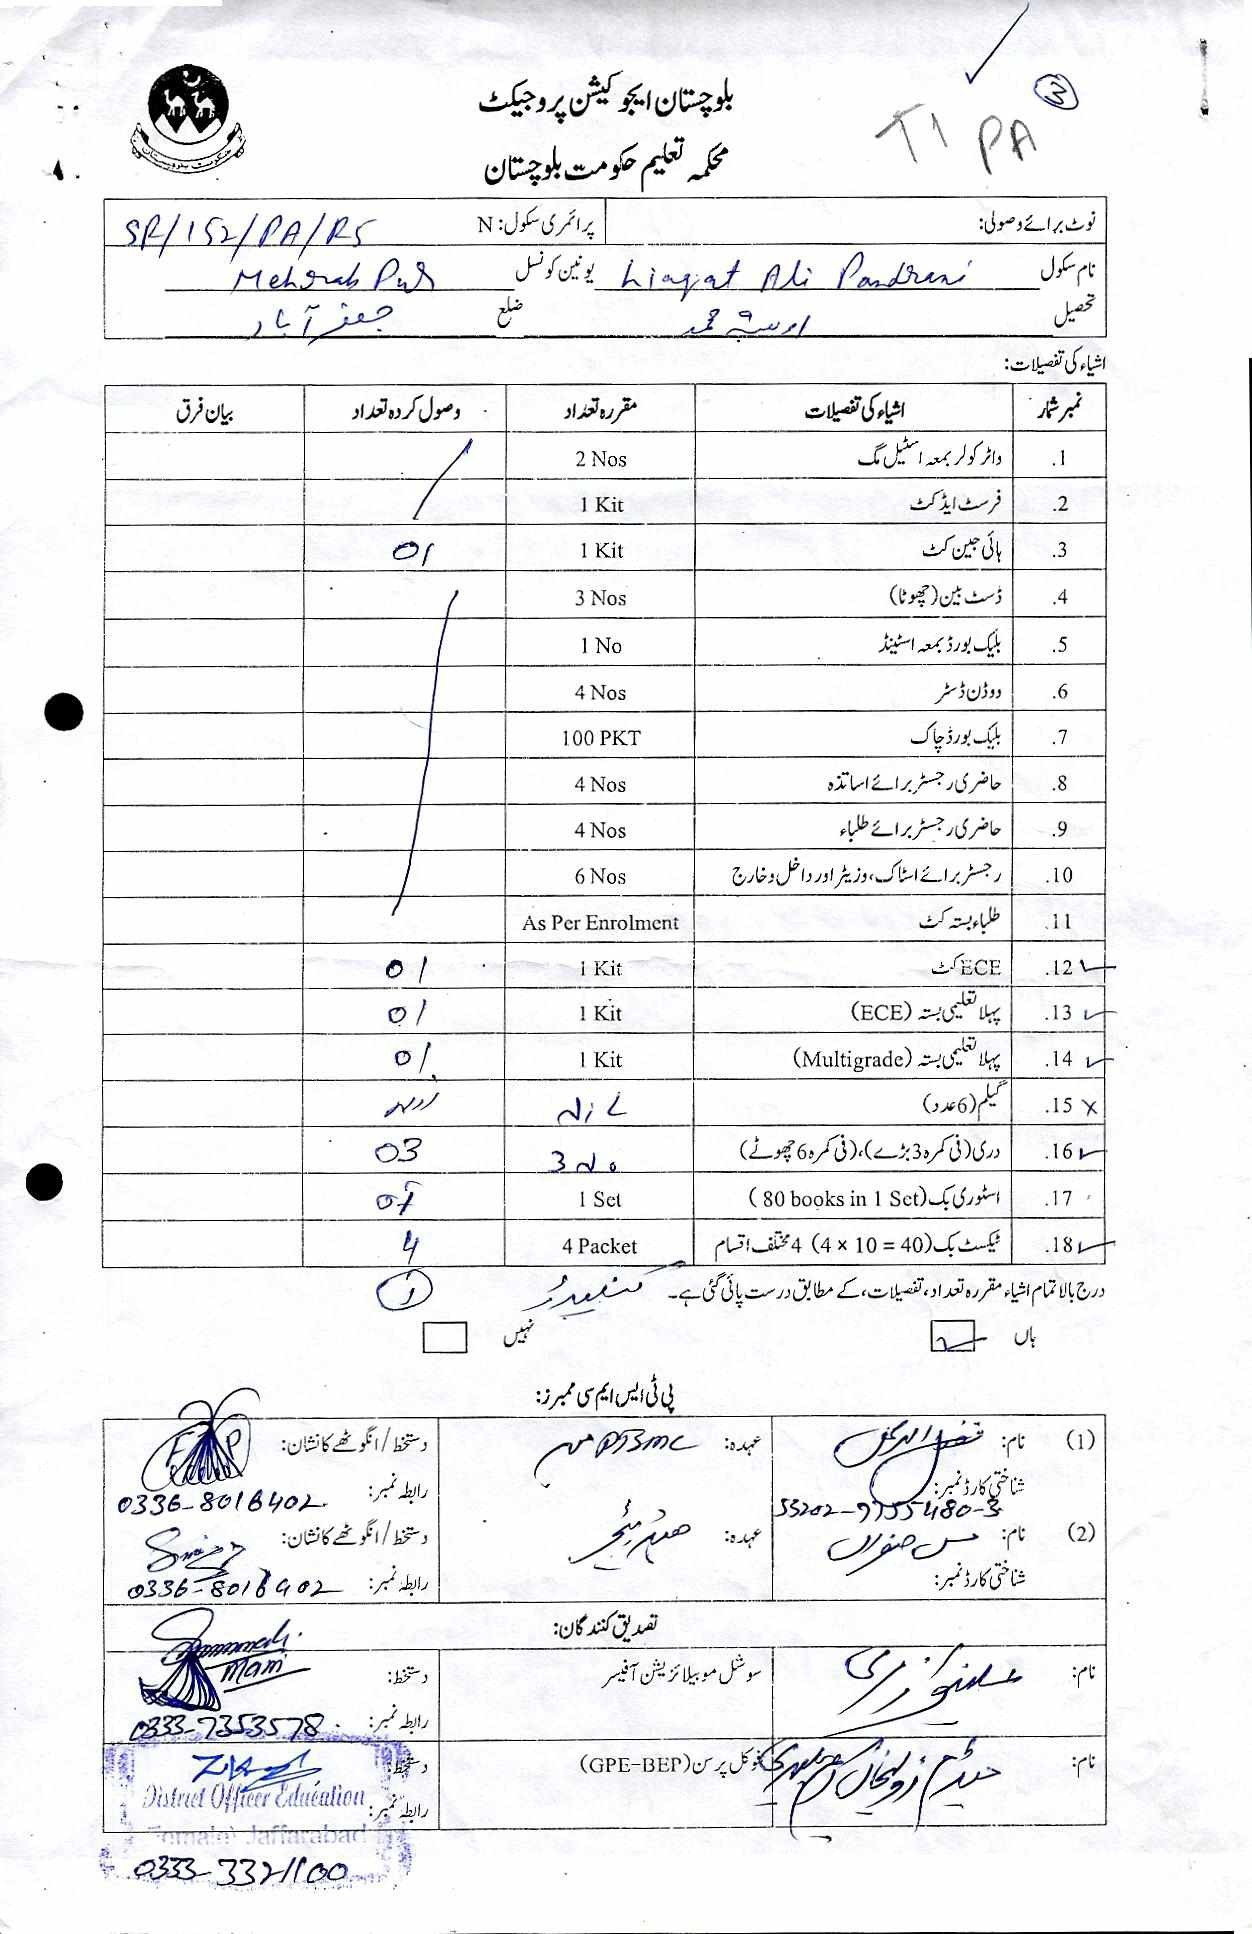 3
T1 PA
بلوچستان ایجوکیشن پروجیکٹ
محکمہ تعلیم حکومت بلوچستان
حکومت بلوچستان
نوٹ برائے وصولی: پرائمری سکول: N SR/152/PA/RS
نام سکول Liaqat Ali Pandrani یونین کونسل Mehrab Pur
تحصیل اوستہ محمد ضلع جعفر آباد
اشیاء کی تفصیلات:
نمبر شمار اشیاء کی تفصیلات مقررہ تعداد وصول کردہ تعداد بیان فرق
1. واٹر کولر بمعہ اسٹیل مگ 2 Nos
2. فرسٹ ایڈ کٹ 1 Kit
3. ہائی جین کٹ 1 Kit 01
4. ڈسٹ بین (چھوٹا) 3 Nos
5. بلیک بورڈ بمعہ اسٹینڈ 1 No
6. ووڈن ڈسٹر 4 Nos
7. بلیک بورڈ چاک 100 PKT
8. حاضری رجسٹر برائے اساتذہ 4 Nos
9. حاضری رجسٹر برائے طلباء 4 Nos
10. رجسٹر برائے اسٹاک، وزیٹر اور داخل و خارج 6 Nos
11. طلباء بستہ کٹ As Per Enrolment
12. ECE کٹ 1 Kit 01
13. پہلا تعلیمی بستہ (ECE) 1 Kit 01
14. پہلا تعلیمی بستہ (Multigrade) 1 Kit 01
15. گیلم (6 عدد) Nil
16. دری (فی کمرہ 3 بڑے)، (فی کمرہ 6 چھوٹے) 3 No 03
17. اسٹوری بک (80 books in 1 Set) 1 Set 01
18. ٹیکسٹ بک (4 × 10 = 40) 4 مختلف اقسام 4 Packet 4
درج بالا تمام اشیاء مقررہ تعداد، تفصیلات، کے مطابق درست پائی گئی ہے۔
ہاں نہیں
پی ٹی ایس ایم سی ممبرز:
(1) نام: عہدہ: PTSMC دستخط / انگوٹھے کا نشان:
شناختی کارڈ نمبر: 53202-9755480-3 رابطہ نمبر: 0336-8016402
(2) نام: عہدہ: دستخط / انگوٹھے کا نشان:
شناختی کارڈ نمبر: رابطہ نمبر: 0336-8016402
تصدیق کنندگان:
نام: سوشل موبیلائزیشن آفیسر دستخط:
رابطہ نمبر: 0333-7353578
نام: فوکل پرسن (GPE-BEP) دستخط:
رابطہ نمبر:
District Officer Education
(Female) Jaffarabad
0333-3321100